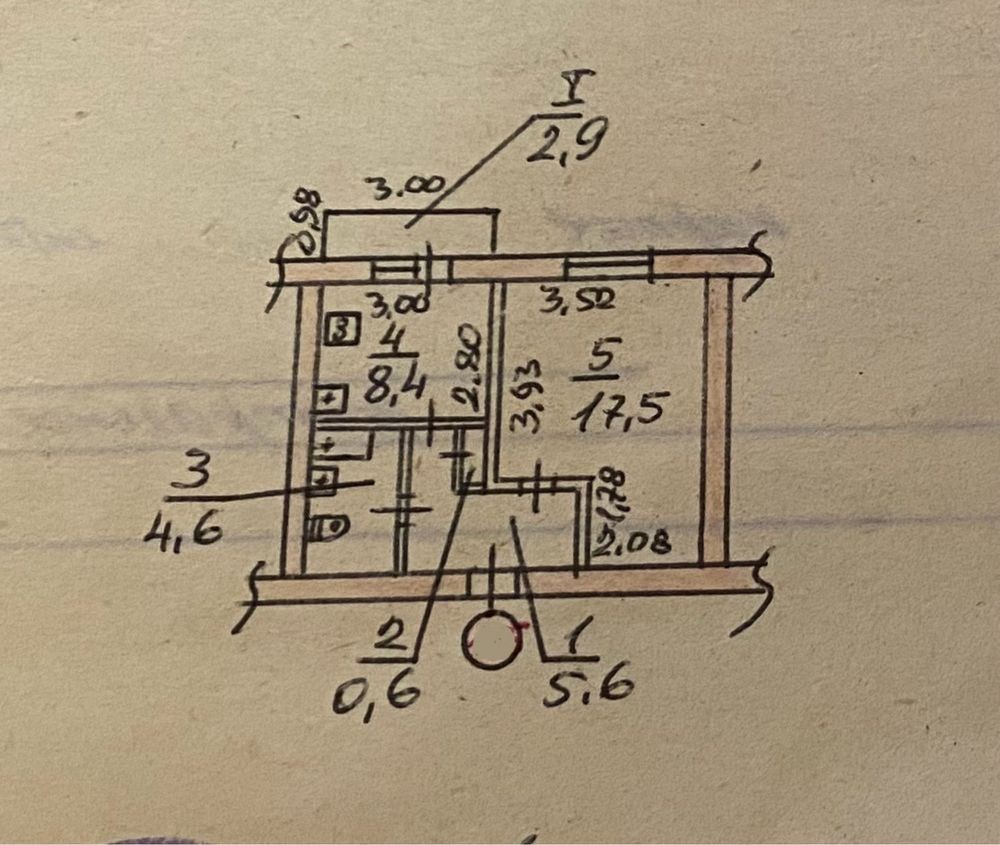 I
2,9
3.00
0,98
3,00
3,52
3
4
8,4
2.80
3,93
5
17,5
3
4,6
1,78
2.08
2
0,6
1
5.6